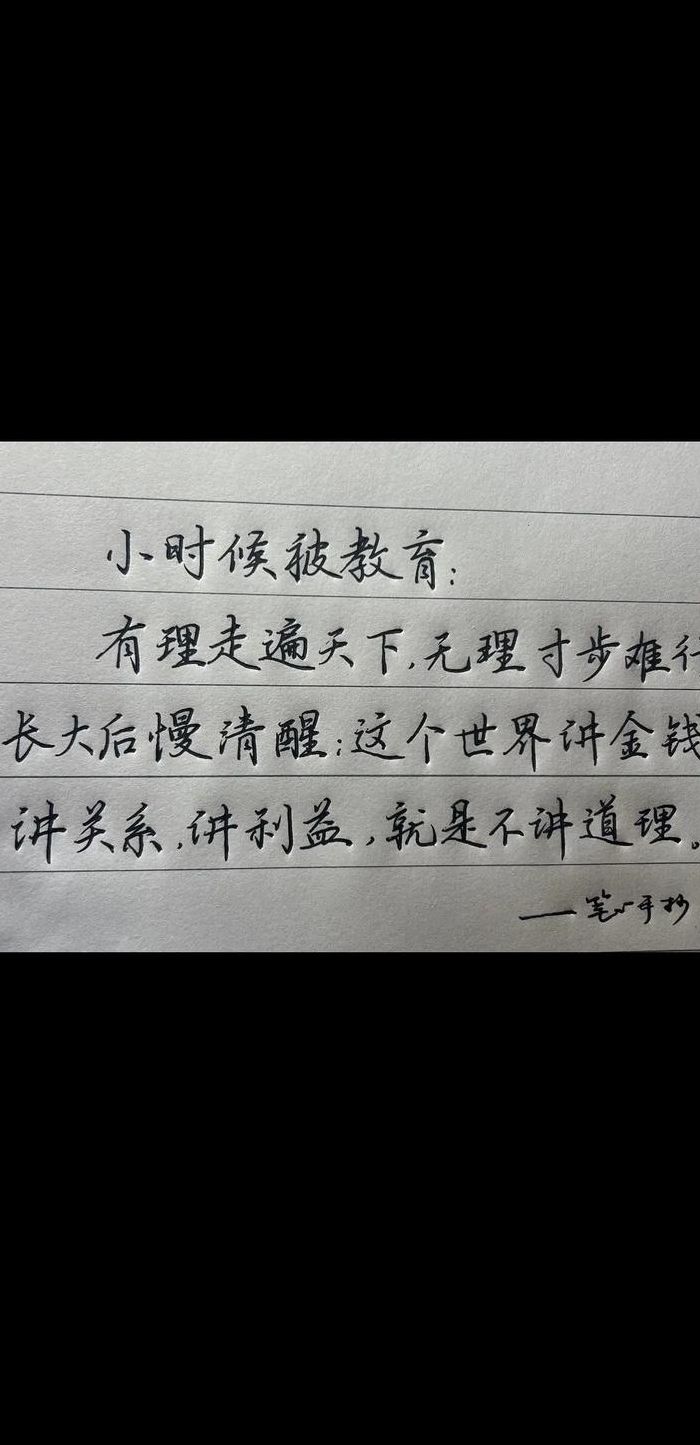 小时候被教育:
有理走遍天下,无理寸步难行
长大后慢清醒:这个世界讲金钱
讲关系,讲利益,就是不讲道理。
手抄